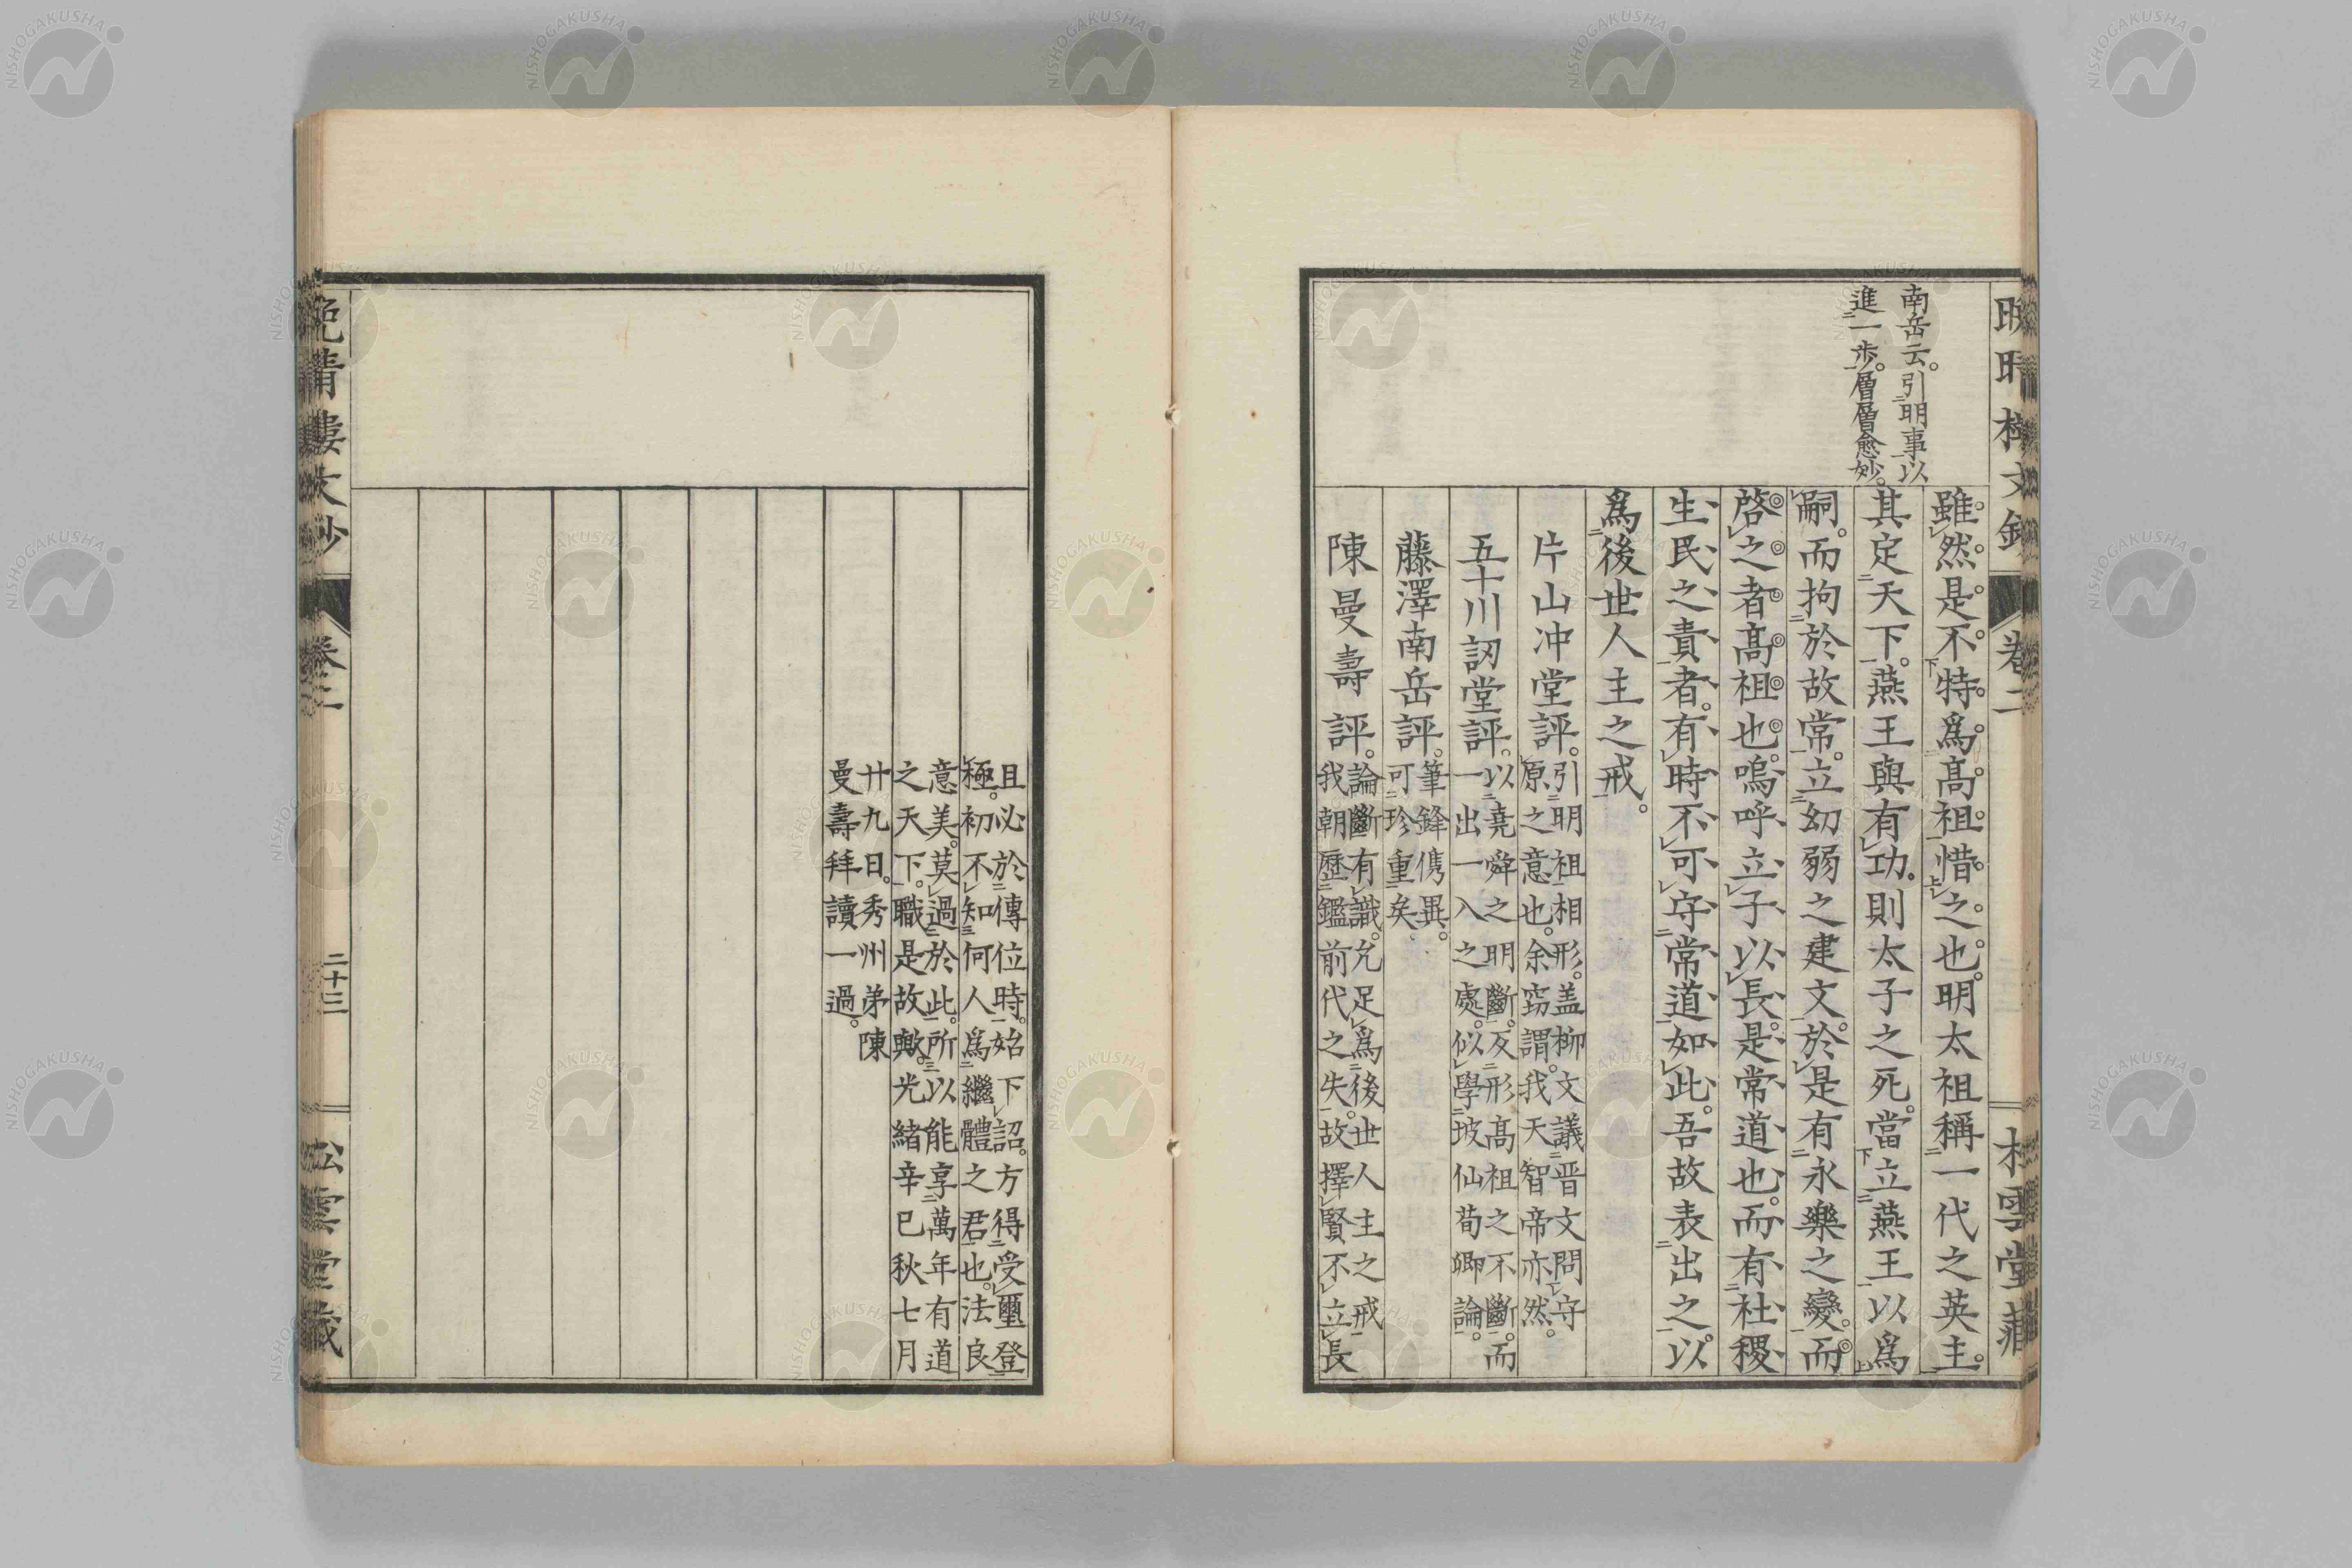 南岳云。引明事以
進一歩。層層愈妙。
雖然。是不特爲高祖惜之也。明太祖稱一代之英主。
其定天下。燕王與有功。則太子之死。當立燕王以爲
嗣。而拘於故常。立幼弱之建文。於是有永樂之變。而
啓之者高祖也。嗚呼、立子以長。是常道也。而有社稷
生民之責者。有時不可守常道如此。吾故表出之。以
爲後世人主之戒。
片山冲堂評。引明祖相形。蓋柳文議晉文問守
原之意也。余窃謂。我天智帝亦然。
五十川訒堂評。以堯舜之明斷。反形高祖之不斷。而
一出一入之處。似學坡仙荀卿論。
藤澤南岳評。筆鋒儁異。
可珍重矣。
陳曼壽評。論斷有識。允足爲後世人主之戒
我朝歷鑑前代之失。故擇賢不立長
卷二
且必於傳位時。始下詔。方得受璽登
極。初不知何人爲繼體之君也。法良
意美。莫過於此。所以能享萬年有道
之天下。職是故歟。光緒辛巳秋七月
廿九日。秀州弟陳
曼壽拜讀一過。
晩晴樓文鈔
卷二
二十三
松雲堂藏
NISHOGAKUSHA